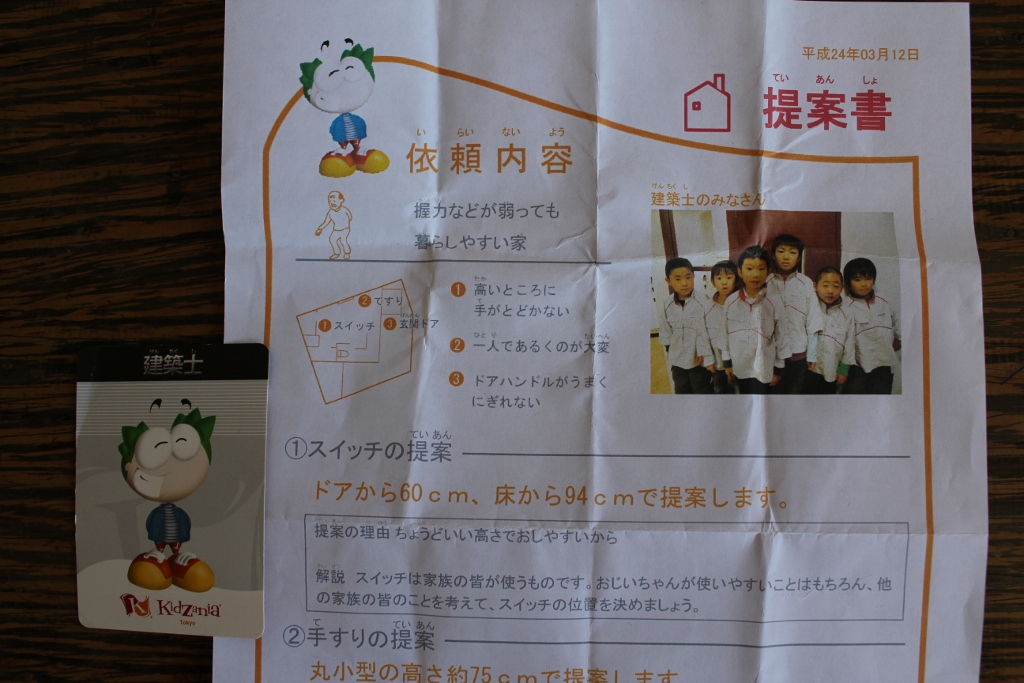 平成24年03月12日
てい あん しょ
提案書
い らい ない よう
依頼内容
握力などが弱っても
暮らしやすい家
けんちくし
建築士のみなさん
② てすり
① スイッチ
げんかん
③ 玄関ドア
たか
① 高いところに
て
手がとどかない
ひとり たいへん
② 一人であるくのが大変
③ ドアハンドルがうまく
にぎれない
ていあん
①スイッチの提案
ドアから60cm、床から94cmで提案します。
提案の理由 ちょうどいい高さでおしやすいから
解説 スイッチは家族の皆が使うものです。おじいちゃんが使いやすいことはもちろん、他
の家族の皆のことを考えて、スイッチの位置を決めましょう。
て ていあん
②手すりの提案
丸小型の高さ約75cmで提案します
けん ちく し
建築士
KidZania
Tokyo